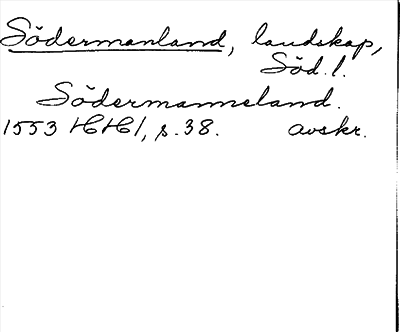 Södermanland, landskap,
Söd. l.
Södermanneland.
1553 HH 1, s. 38. avskr.